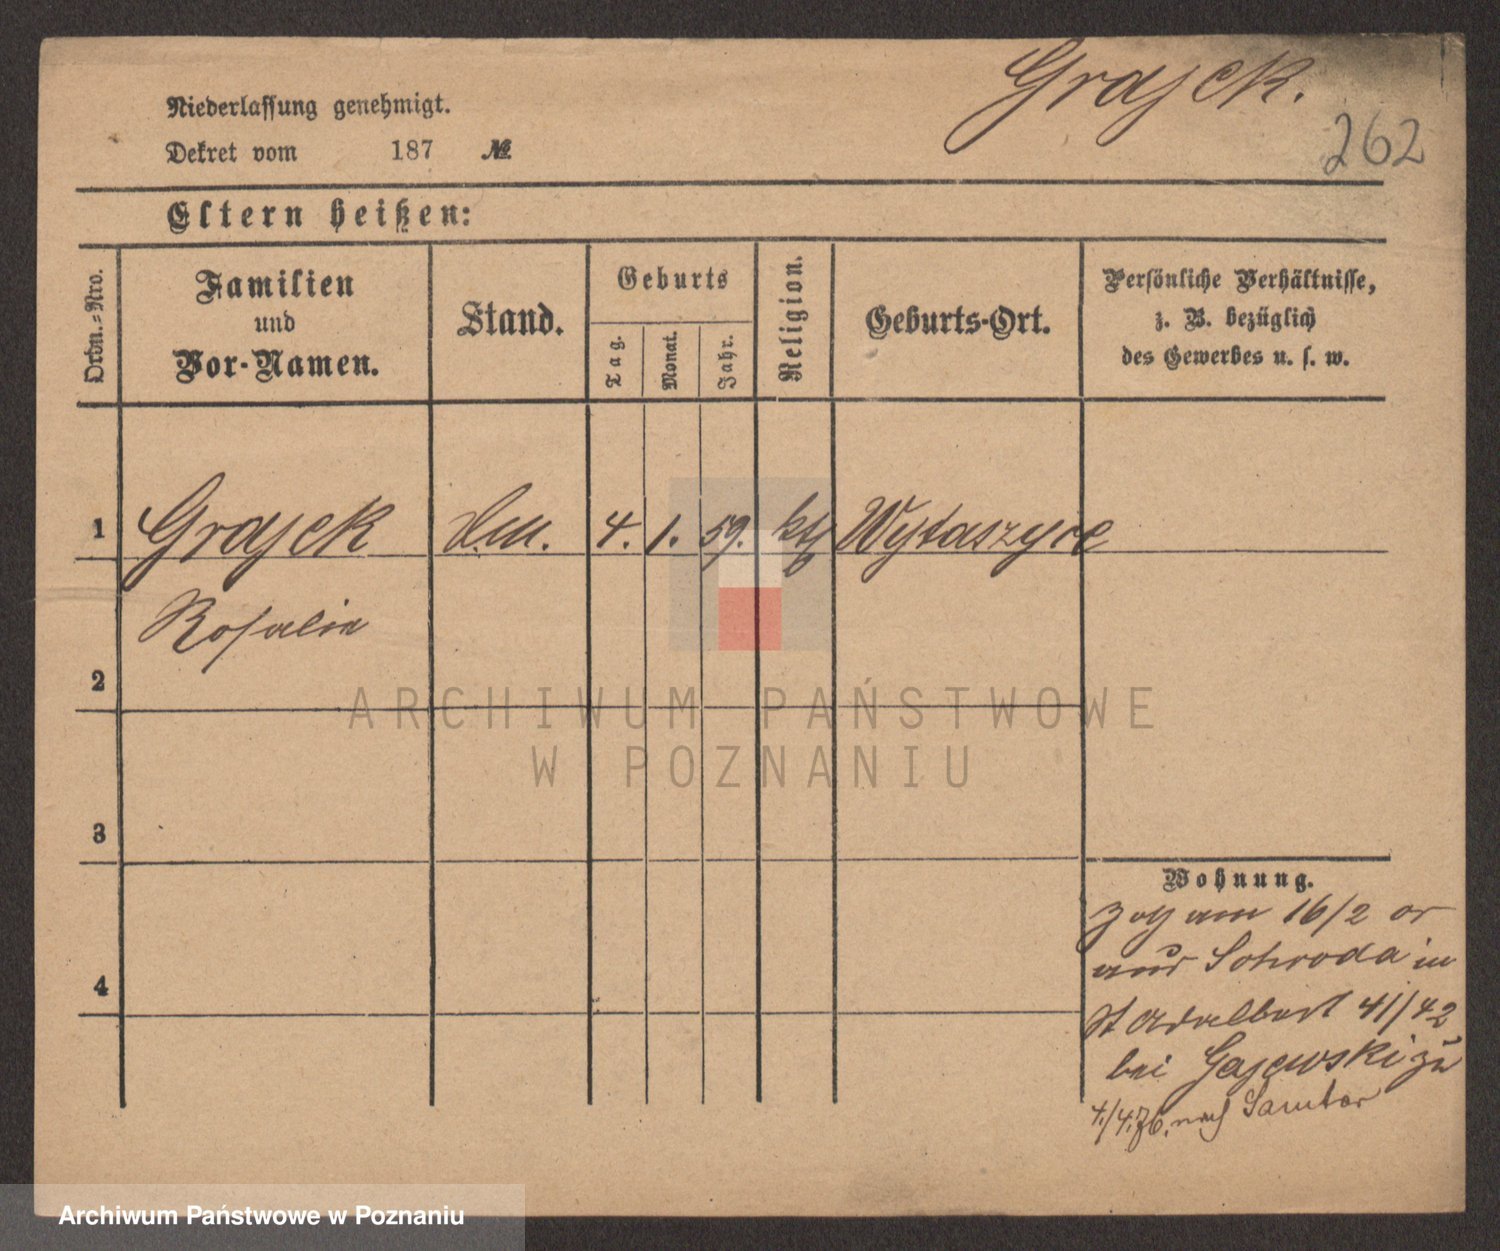 Grajek.
262
Niederlassung genehmigt.
Dekret vom 187 №
Eltern heißen:
Ordn.-Nro.
Familien
und
Vor-Namen.
Stand.
Geburts
Tag.
Monat.
Jahr.
Religion.
Geburts-Ort.
Persönliche Verhältnisse,
z. B. bezüglich
des Gewerbes u. s. w.
1 Grajek 4. 1. 59. kth Wytaszyce
Rosalie
2
3
4
Wohnung.
zog am 16/2 cr
aus Schroda in
St Adalbert 41/42
bei Gajewski zu
4/4.76. nach Samter
ARCHIWUM PAŃSTWOWE
W POZNANIU
Archiwum Państwowe w Poznaniu